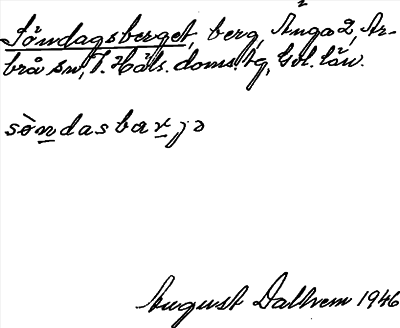 Söndagsberget, berg, Änga 2, Ar-
brå sn, V. Häls. doms. tg, Gbl. län.
sòndasbarjə
August Dalhem 1946